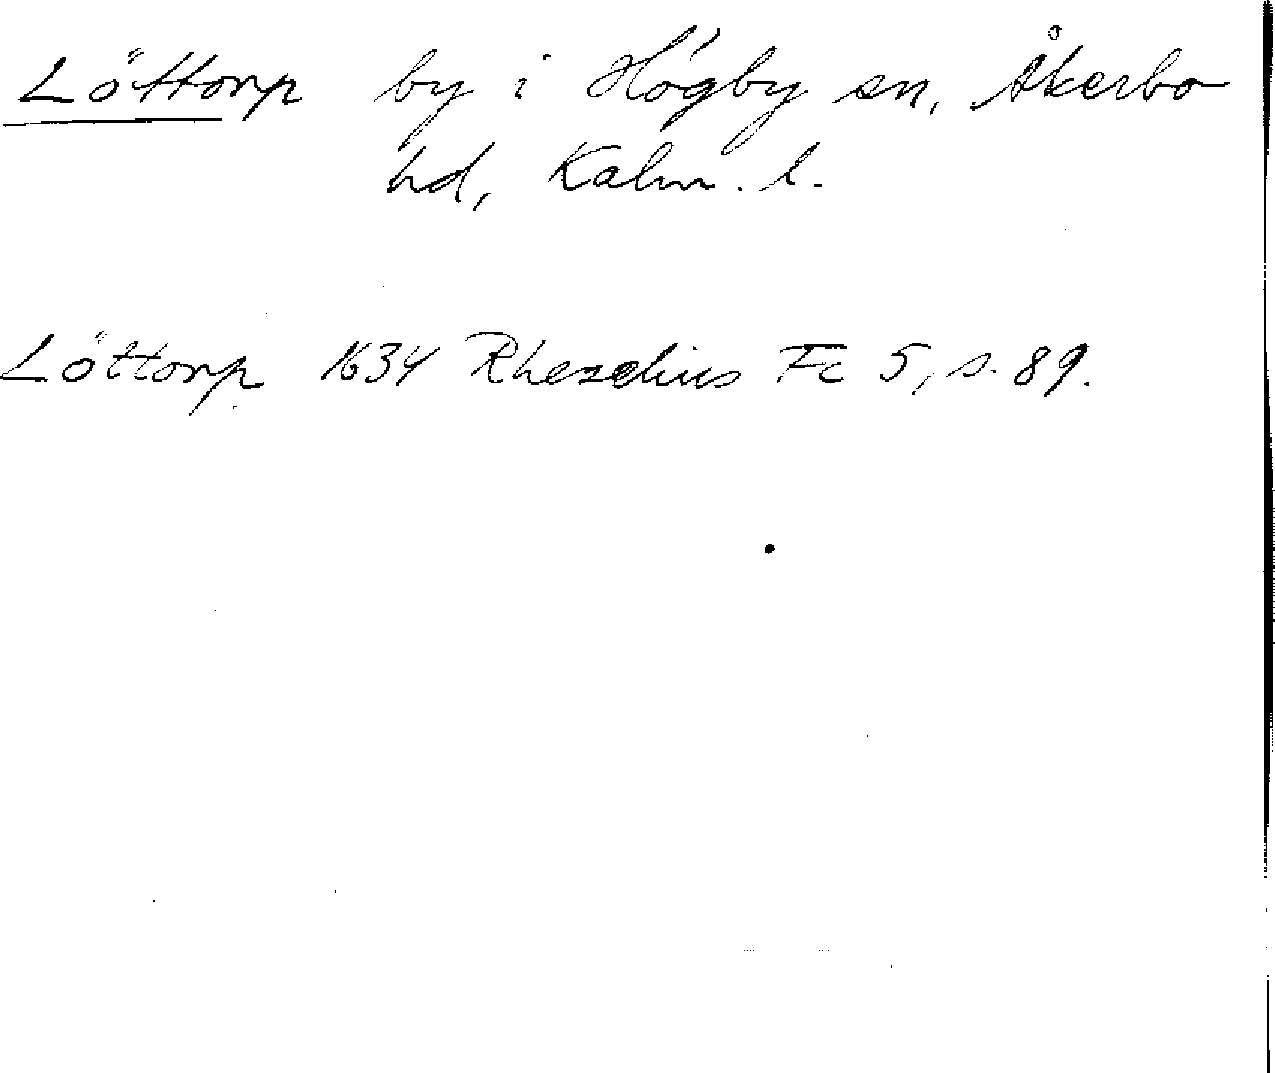 Löttorp by i Högby sn, Åkerbo
hd, Kalm. l.
Löttorp 1634 Rhezelius Fc 5, s. 89.